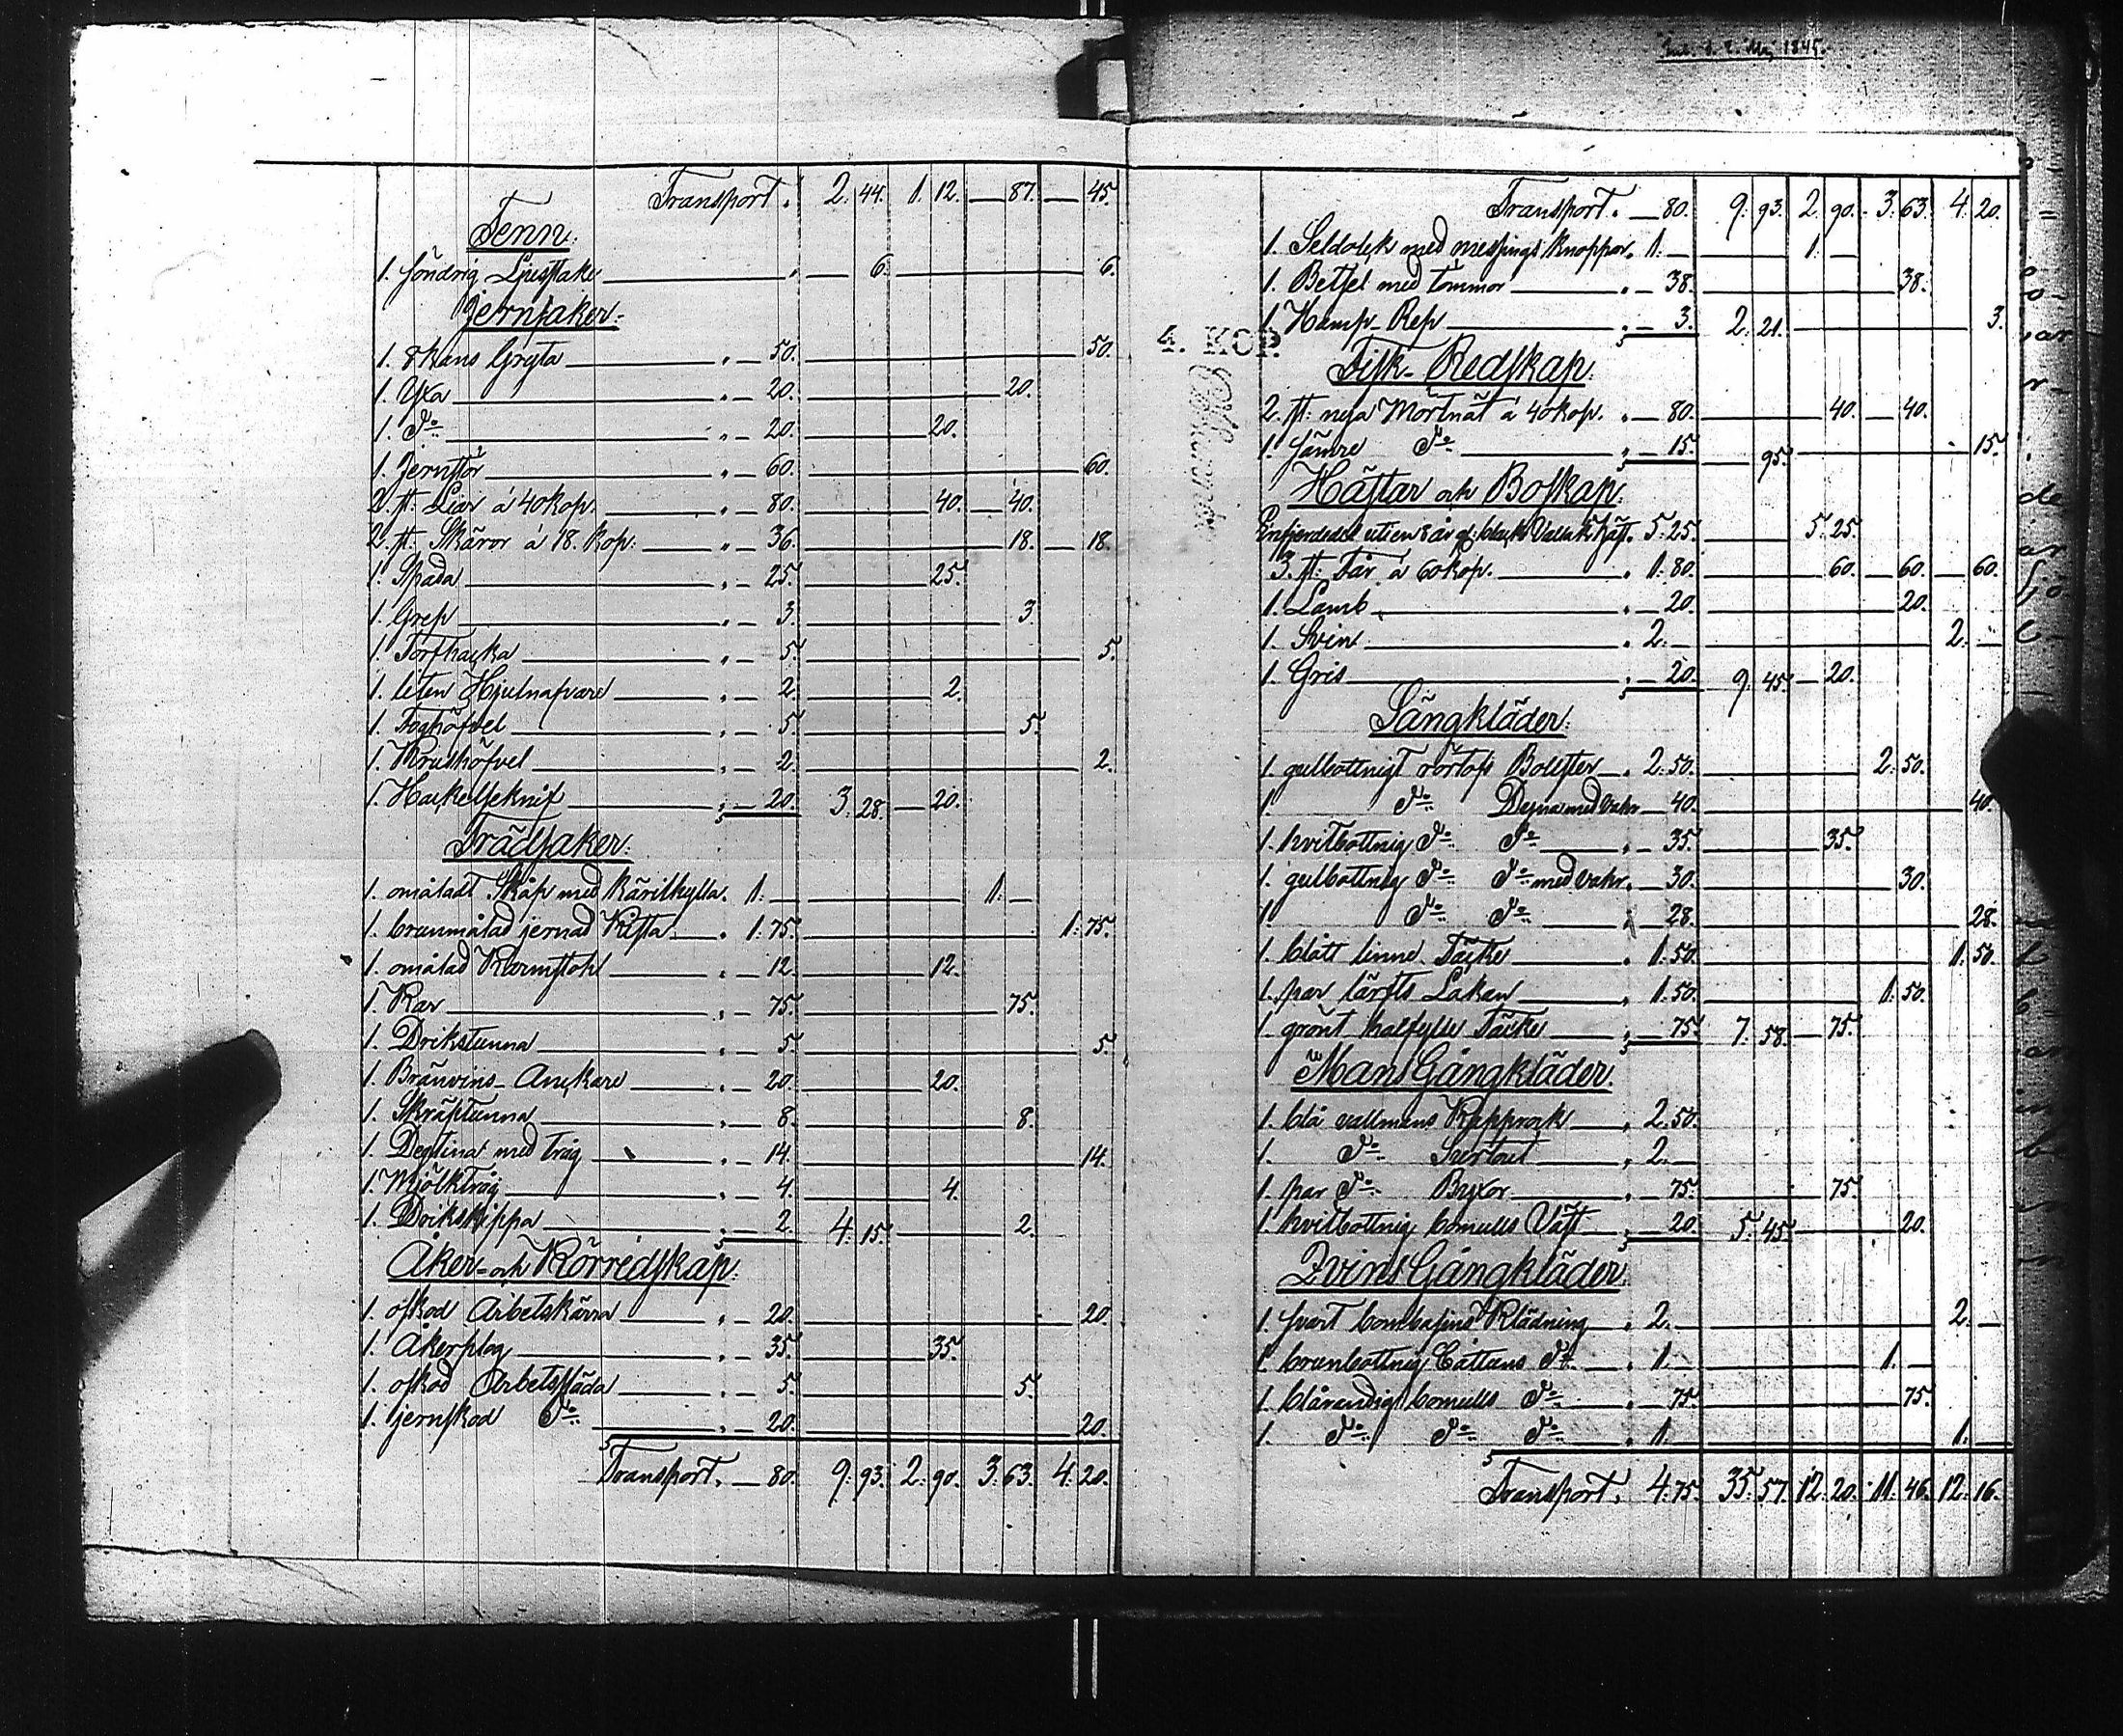 Transport. 2. 44. 1. 12. — 87. — 45.
Tenn:
1. söndrig Ljusstake — 6. 6.
Jernsaker:
1. 8 kans Gryta „ — 50. 50.
1. Yxa „ — 20. 20.
1. D:o „ — 20. 20.
1. Jernstör „ — 60. 60.
2. st: Liar á 40 kop. „ — 80. 40. — 40.
2. st. Skäror á 18. kop: „ — 36. 18. — 18.
1. Spada „ — 25. 25.
1. Grep „ — 3. 3.
1. Torfhacka „ — 5. 5.
1. liten Hjulnafvare „ — 2. 2.
1. Foghöfvel „ — 5. 5.
1. Krushöfvel „ — 2. 2.
1. Hackelseknif „ — 20. 3. 28. — 20.
Trädsaker:
1. omåladt Skåp med Kärilhylla. 1. — 1. —
1. brunmålad jernad Kista „ 1. 75. 1. 75.
1. omålad Karmstohl „ — 12. 12.
1. Kar „ — 75. 75.
1. Drikstunna „ — 5. 5.
1. Bränvins-Anckare „ — 20. 20.
1. Skräptunna „ — 8. 8.
1. Degtina med tråg „ — 14. 14.
1. Mjölktråg „ — 4. 4.
1. Drikskippa „ — 2. 4. 15. 2.
Åker- och Körredskap:
1. oskod Arbetskärra „ — 20. 20.
1. Åkerplog „ — 35. 35.
1. oskod Arbetssläda „ — 5. 5.
1. jernskod D:o „ — 20. 20.
Transport. — 80. 9: 93. 2: 90. 3: 63. 4: 20.
1845.
4. KOP.
Transport. — 80. 9: 93. 2. 90. 3. 63. 4. 20.
1. Seldolck med messings knoppar. 1. — 1. —
1. Betsel med tömmor „ — 38. 38.
1. Hamp-Rep „ — 3. 2. 21. 3.
Fisk-Redskap:
2. st: nya Mörtnät á 40 kop. „ — 80. 40. — 40.
1. sämre D:o „ — 15. — 95. 15.
Hästar och Boskap:
Enfjerdedel uti en 8 år g: black Vallak häst. 5. 25. 5. 25.
3. st: Får á 60 kop. „ 1. 80. 60. — 60. — 60.
1. Lamb „ — 20. 20.
1. Svin „ 2. — 2. —
1. Gris „ — 20. 9. 45. — 20.
Sängkläder:
1. gulbottnigt rörtofs Bolster „ 2. 50. 2. 50.
1. D:o Dyna med vahr — 40. 40.
1. hvitbottnig D:o D:o „ — 35. 35.
1. gulbottnig D:o D:o med vahr. — 30. 30.
1. D:o D:o „ 28. 28.
1. blått linne Täcke „ 1. 50. 1. 50.
1. par lärfts Lakan „ 1. 50. 1. 50.
1. grönt halfylle Täcke „ — 75. 7. 58. — 75.
Mans Gångkläder:
1. blå vallmans Kapprock „ 2. 50.
1. D:o Surtout „ 2. —
1. par D:o Byxor „ — 75. 75.
1. hvitbottnig bomulls Väst „ — 20. 5. 45. 20.
Qvins Gångkläder:
1. svart bombasins Klädning „ 2. — 2. —
1. brunbottnig Cattuns D:o „ 1. — 1. —
1. blårandig bomulls D:o „ — 75. 75.
1. D:o D:o D:o „ 1. — 1. —
Transport. 4. 75. 35. 57. 12. 20. 11. 46. 12. 16.